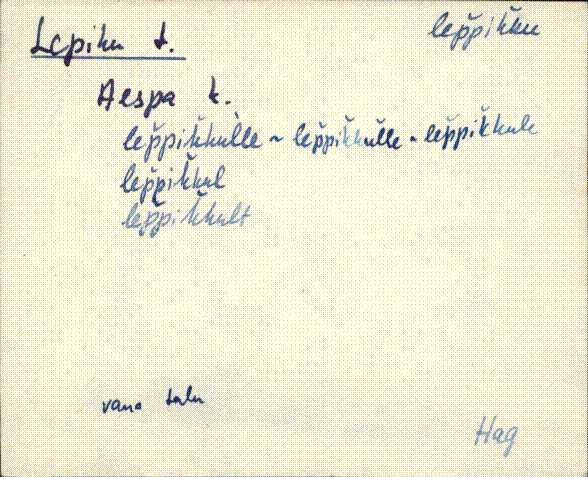 lep̌pik̆ku
Lepiku t.
Aespa k.
lep̌pik̆kulle ~ lep̌pik̆kulle ~ lep̌pik̆kule
lep̌pik̆kul
lep̌pik̆kult
vana talu
Hag